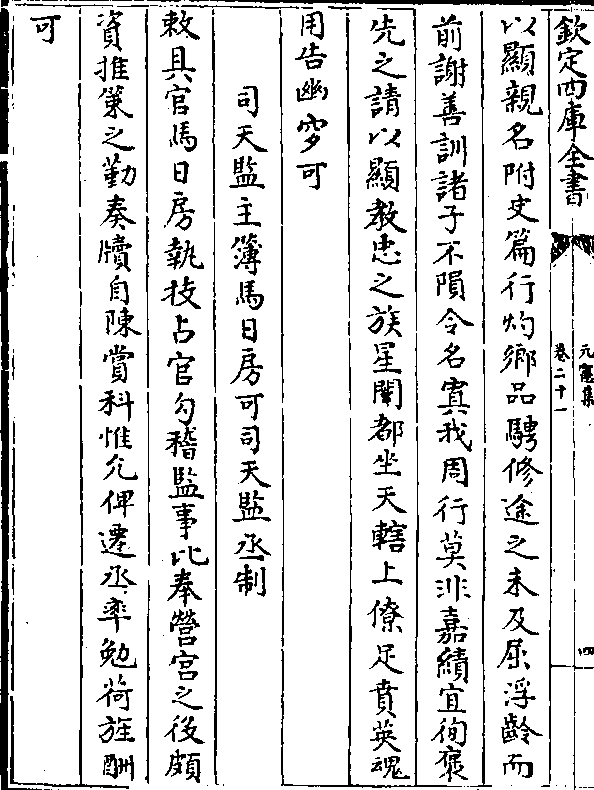 欽定四庫全書
元憲集
卷二十一
四
以顯親名附史篇行灼鄉品騁修途之未及屈浮齡而
前謝善訓諸子不隕令名寘我周行莫非嘉績宜徇褒
先之請以顯教忠之族星闈都坐天轄上僚足賁英魂
用告幽穸可
司天監主簿馬日房可司天監丞制
敕具官馬日房執技占官勾稽監事比奉營宫之役頗
資推策之勤奏牘自陳賞科惟允俾遷丞率勉荷旌酬
可